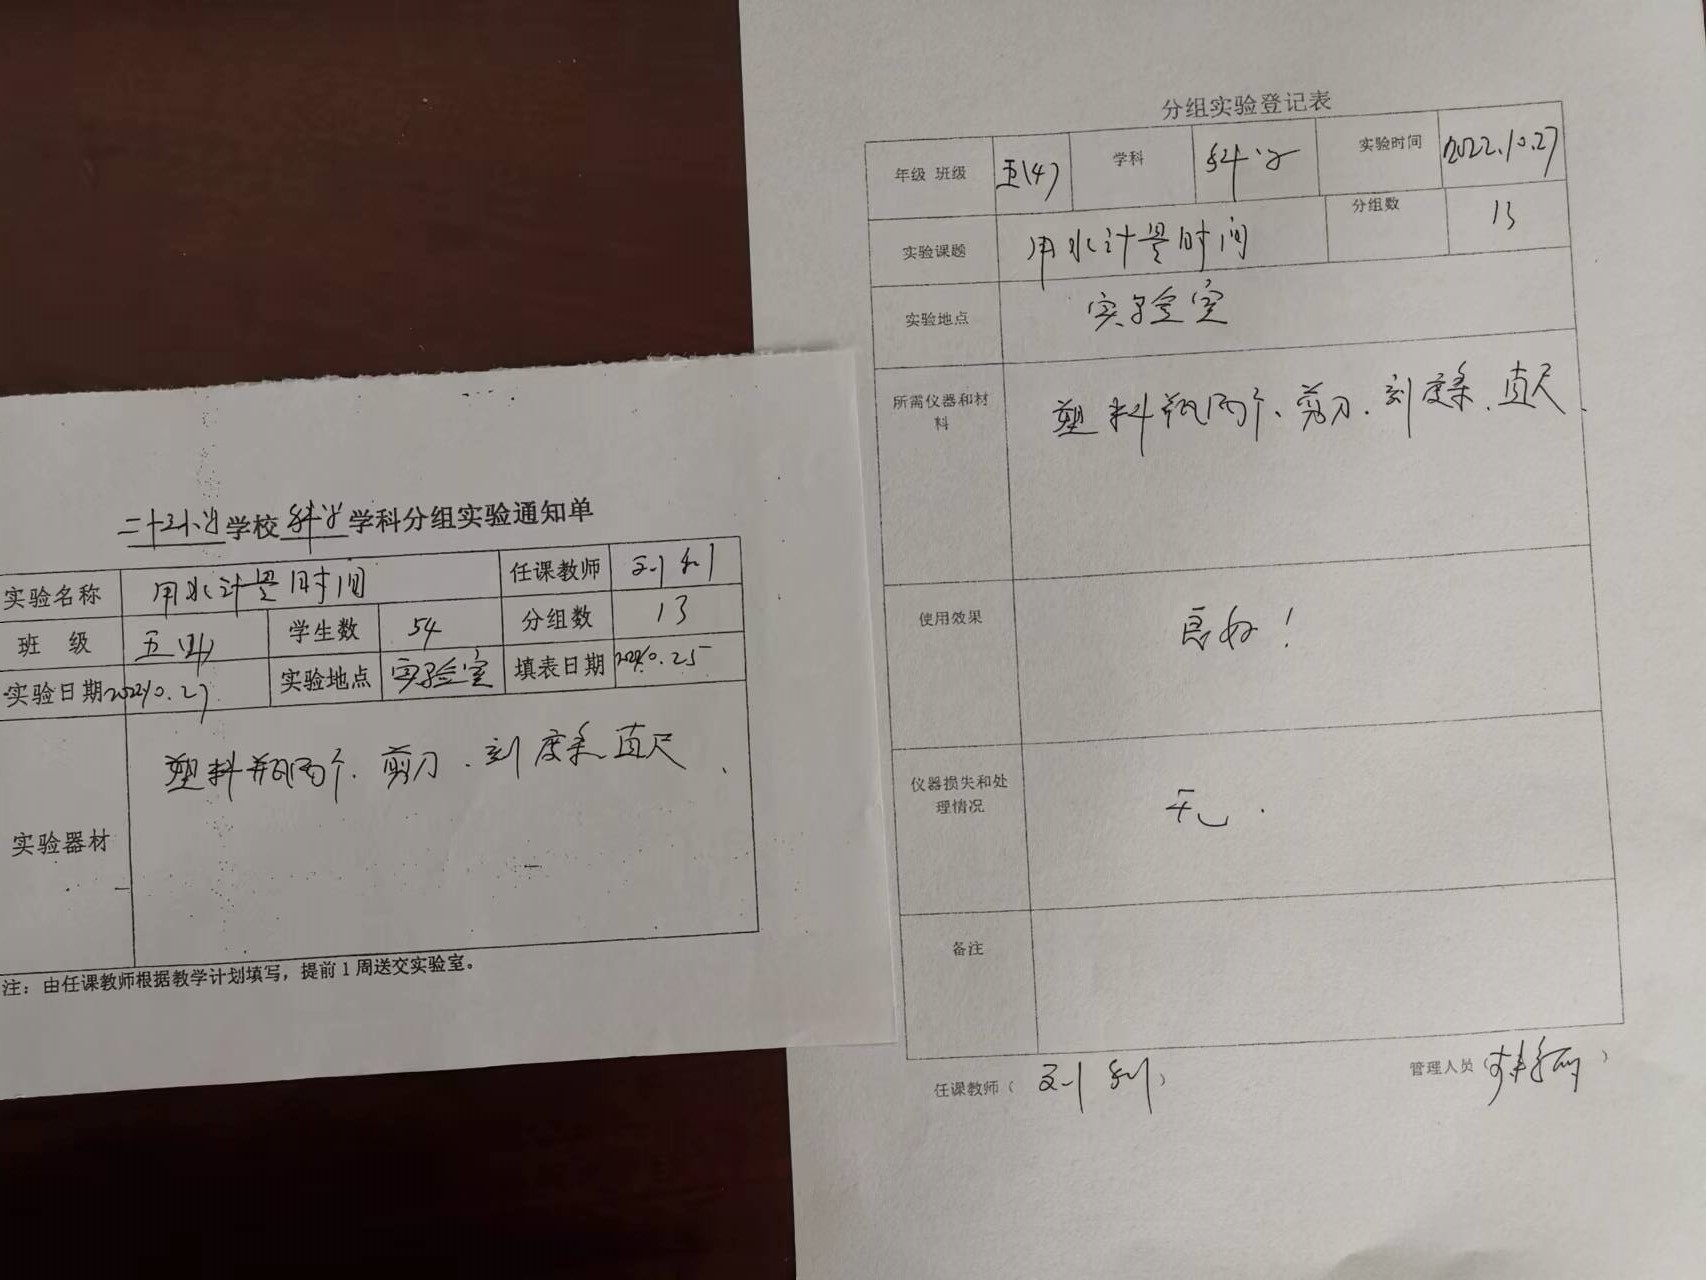 学校 科学 学科分组实验通知单
实验名称 用水计量时间 任课教师 刘利
班 级 五(4) 学生数 54 分组数 13
实验日期 2022.10.27 实验地点 实验室 填表日期 2022.10.25
实验器材 塑料瓶两个、剪刀、刻度条、直尺、
注：由任课教师根据教学计划填写，提前1周送交实验室。
分组实验登记表
年级 班级 五(4) 学科 科学 实验时间 2022.10.27
实验课题 用水计量时间 分组数 13
实验地点 实验室
所需仪器和材
料
塑料瓶两个、剪刀、刻度条、直尺、
使用效果 良好！
仪器损失和处
理情况
无.
备注
任课教师（刘利） 管理人员（ ）